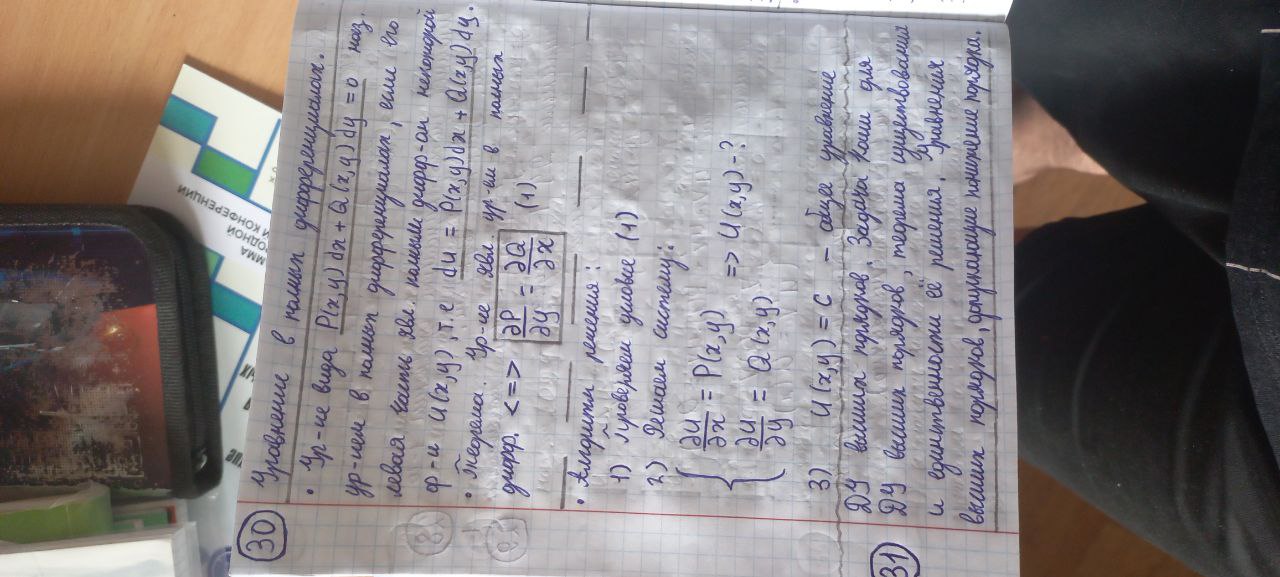 30 Уравнения в полных дифференциалах.
• Ур-ие вида P(x,y)dx + Q(x,y)dy = 0 наз.
ур-ием в полных дифференциалах, если его
левая часть явл. полным дифф-ом некоторой
ф-и U(x,y), т.е du = P(x,y)dx + Q(x,y)dy.
• Теорема. Ур-ие явл ур-ем в полных
дифф. <=> ∂P/∂y = ∂Q/∂x (1)
• Алгоритм решения:
1) Проверяем условие (1)
2) Решаем систему:
{ ∂u/∂x = P(x,y)
∂u/∂y = Q(x,y) => U(x,y)-?
3) U(x,y) = C - общее уравнение
31 ДУ высших порядков. Задача Коши для
ДУ высших порядков, теорема существования
и единственности её решения, Уравнения
высших порядков, допускающие понижение порядка.
ОДНОЙ
КОНФЕРЕНЦИИ